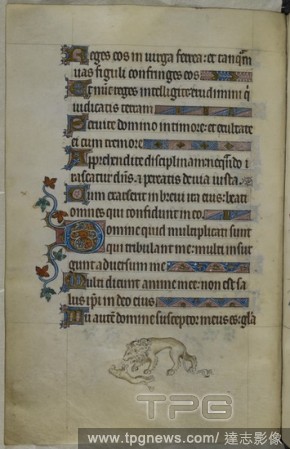 Reges eos in uirga ferrea: et tanqm
uas figuli confringes eos
Et nunc reges intelligite: erudimini q
iudicatis terram
Seruite domino in timore: et exultate
et cum tremore
Apprehendite disciplinam nequando i
rascatur dns. et pereatis de uia iusta.
Cum exarserit in breui ira eius: beati
omnes qui confidunt in eo
Domine quid multiplicati sunt
qui tribulant me: multi insur
gunt aduersum me
Multi dicunt anime mee: non est sa
lus ipi in deo eius
Tu autem domine susceptor meus es: gla
TPG
www.tpgnews.com/ 達志影像